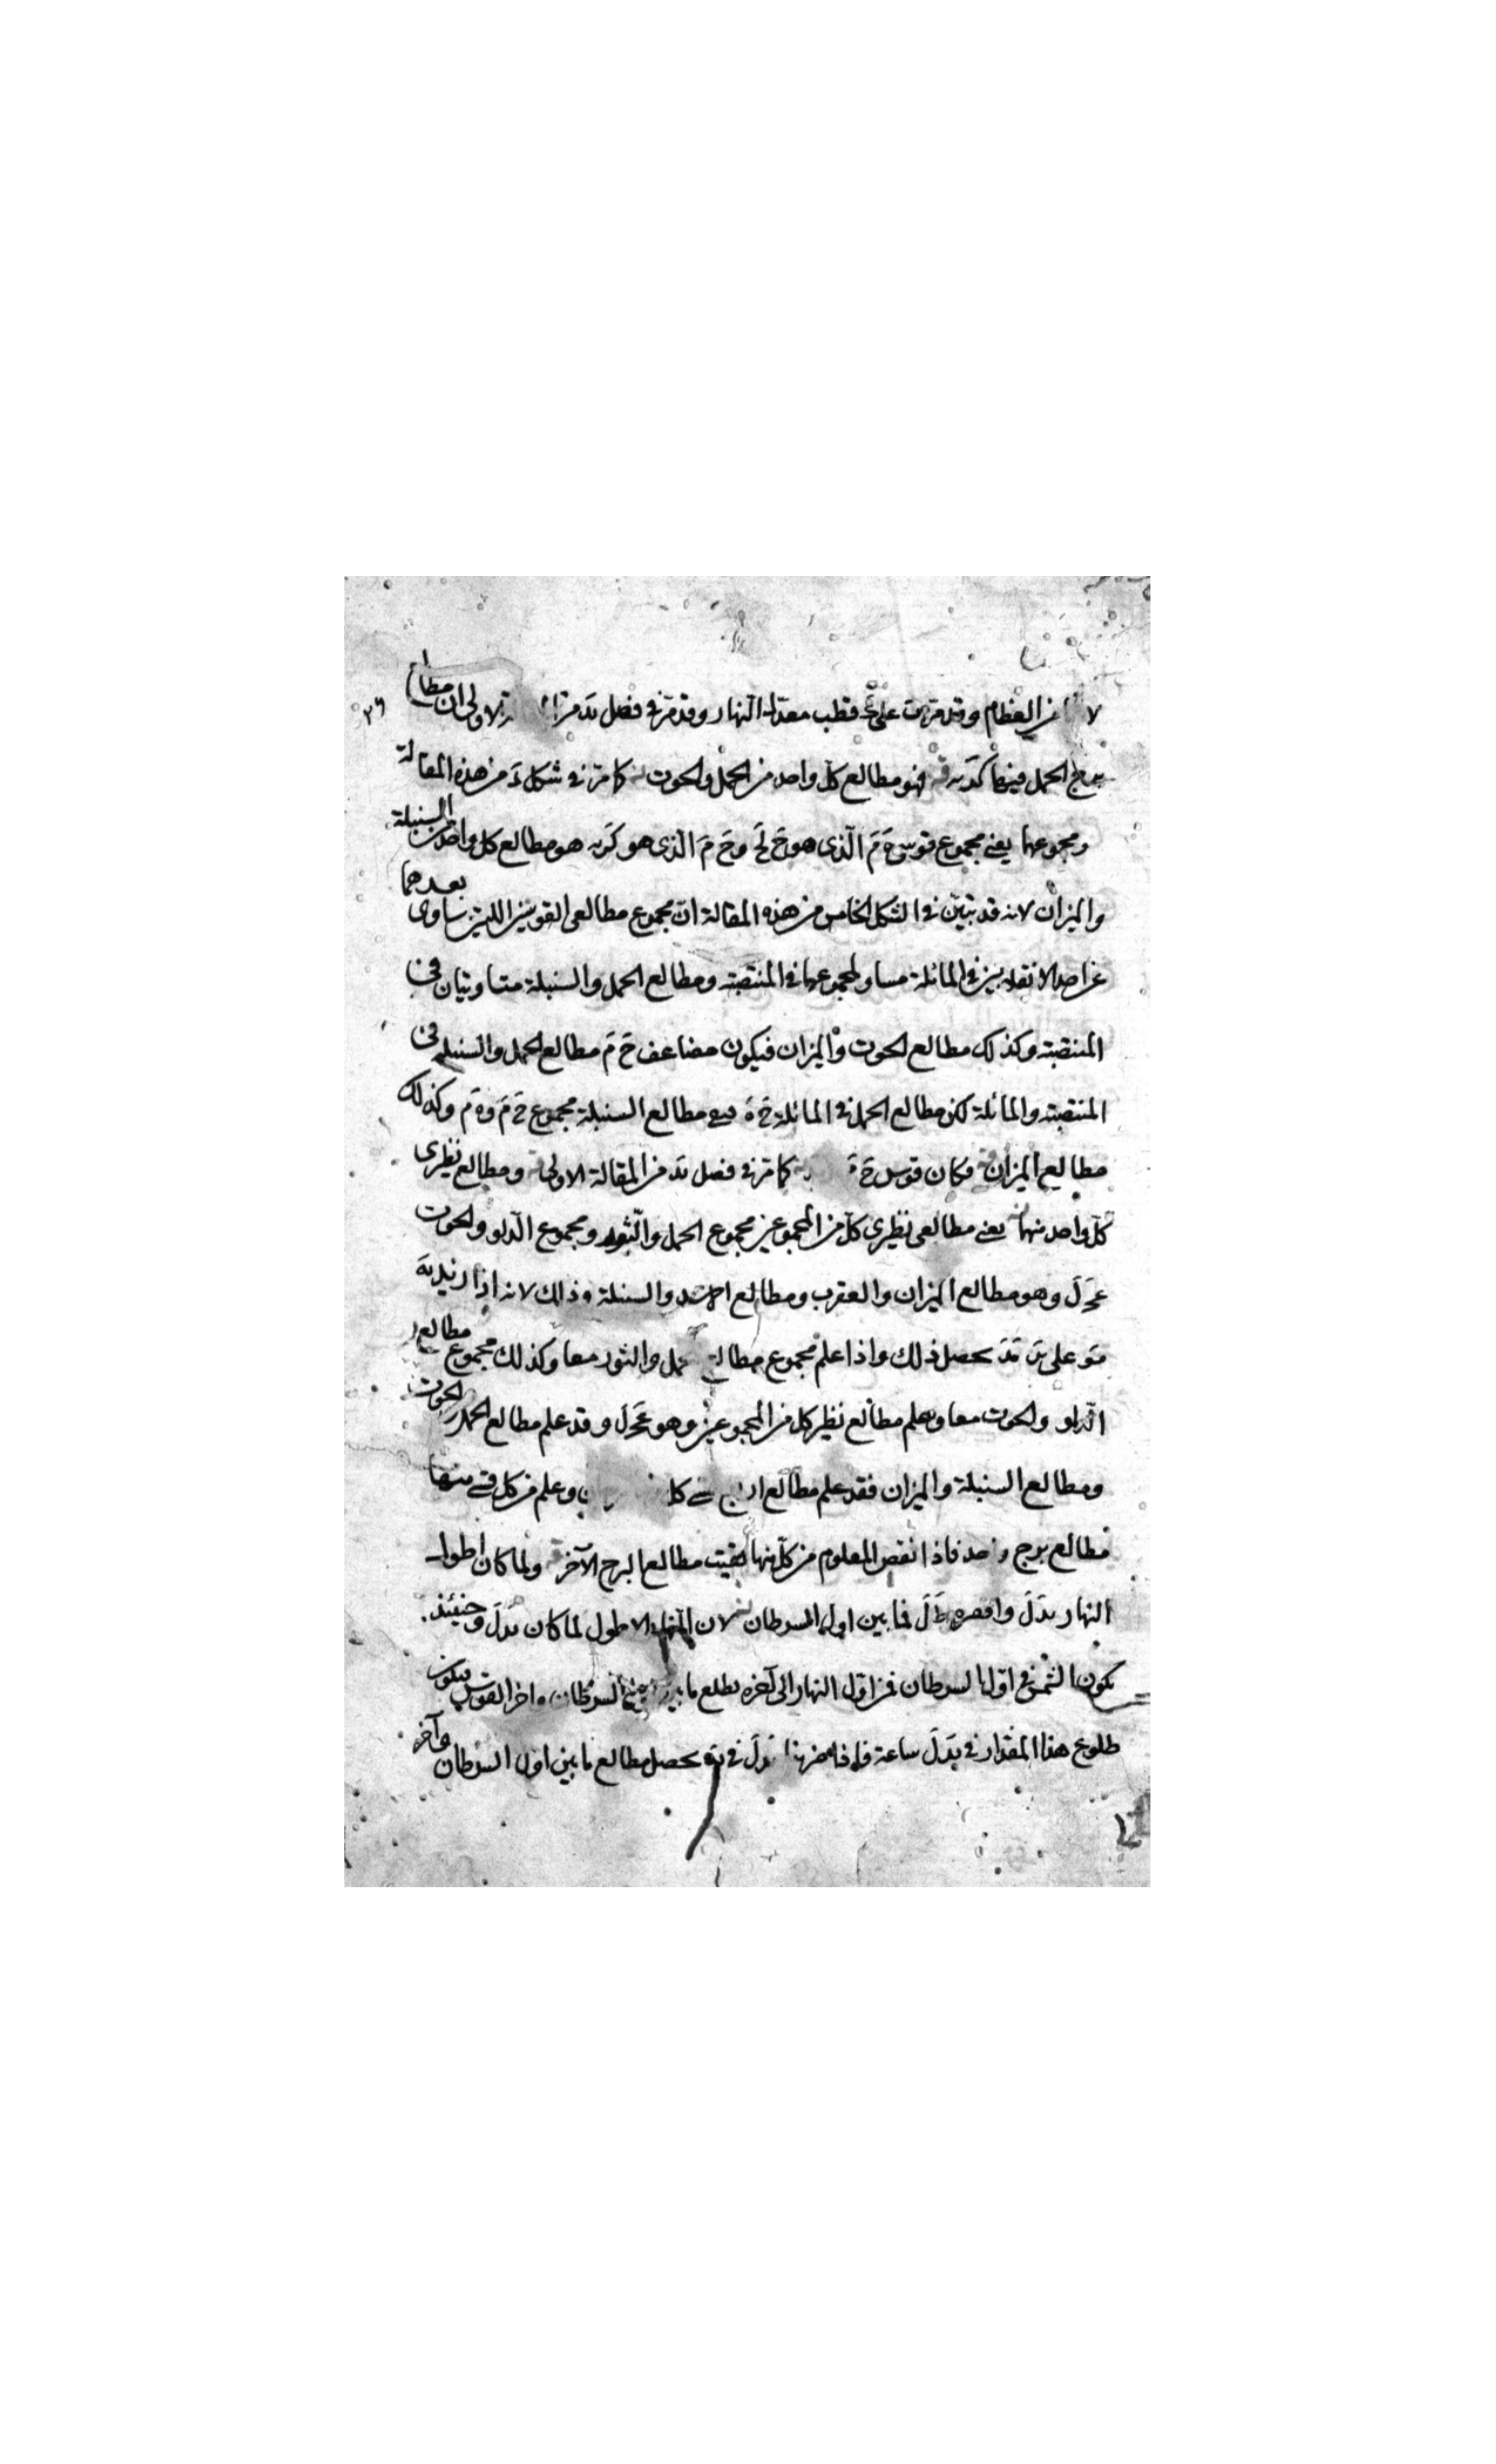 من العظام وقد مرت على قطب معدل النهار وقد مر فى فصل يد من الاولى ان مطالع
برج الحمل فيها كدَ يه فهو مطالع كل واحد من الحمل والحوت كما مر فى شكل دَ من هذه المقالة
ومجموعهما يعنى مجموع قوس هَ مَ الذى هو حَ لَ وحَ مَ الذى هو كَز يه هو مطالع كل واحد من السنبلة
والميزان لانه قد تبين فى الشكل الخامس من هذه المقالة ان مجموع مطالعى القوسين اللتين يساوى بعدهما
عن احد الانقلابين فى المائلة مساو لمجموعهما فى المنتصبة ومطالع الحمل والسنبلة متساويتان فى
المنتصبة وكذلك مطالع الحوت والميزان فيكون مضاعف حَ مَ مطالع الحمل والسنبلة فى
المنتصبة والمائلة لكن مطالع الحمل فى المائلة حَ هَ يبقى مطالع السنبلة مجموع حَ مَ وهَ مَ وكذلك
مطالع الميزان فكان قوس حَ هَ كما مر فى فصل يد من المقالة الاولى ومطالع نظيرى
كل واحد منهما يعنى مطالعى نظيرى كل من المجموعين مجموع الحمل والثور ومجموع الدلو والحوت
عحَ لَ وهو مطالع الميزان والعقرب ومطالع الاسد والسنبلة وذلك لانه اذا زيد يهَ
مَو على نَر نَدَ يحصل ذلك واذا علم مجموع مطالع الحمل والثور معا وكذلك مجموع مطالع
الدلو والحوت معا وعلم مطالع نظير كل من المجموعين وهو عحَ لَ وقد علم مطالع الحمل والحوت
ومطالع السنبلة والميزان فقد علم مطالع وعلم من كل قسمى منها
مطالع برج واحد فاذا نقص المعلوم من كل منها بقيت مطالع البرج الآخر ولما كان اطول
النهار يدَ لَ واقصره طَ لَ فما بين اول السرطان لان النهار الاطول لما كان يدَ لَ وحينئذ
يكون الشمس فى اول السرطان فمن اول النهار الى آخره يطلع ما بين السرطان واخر القوس فيكون
طلوع هذا المقدار فى يدَ لَ ساعة فاذا ضربنا يدَ لَ فى يهَ يحصل مطالع ما بين اول السرطان وآخر